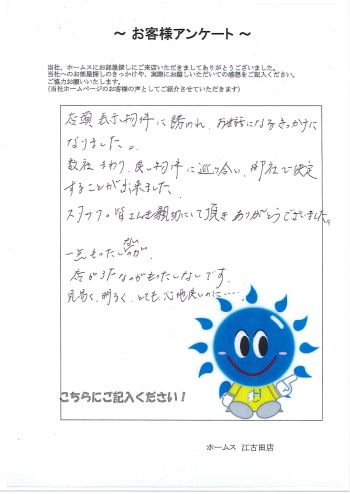 ～ お客様アンケート ～
当社、ホームスにお部屋探しにご来店いただきましてありがとうございました。
当社へのお部屋探しのきっかけや、実際にお越しいただいての感想をご記入ください。
ご協力お願いいたします。
(当社ホームページのお客様の声としてご紹介させていただきます)
店頭表示物件に誘われ、お世話になるきっかけに
なりました。
数社まわり、良い物件に巡り合い、御社で決定
することが出来ました。
スタッフの皆さんも親切にして頂きありがとうございました。
一点もったいないのが、
店が3Fなのがもったいないです。
見易く、明るく、とても心地良いのに……
こちらにご記入ください！
ホームス 江古田店